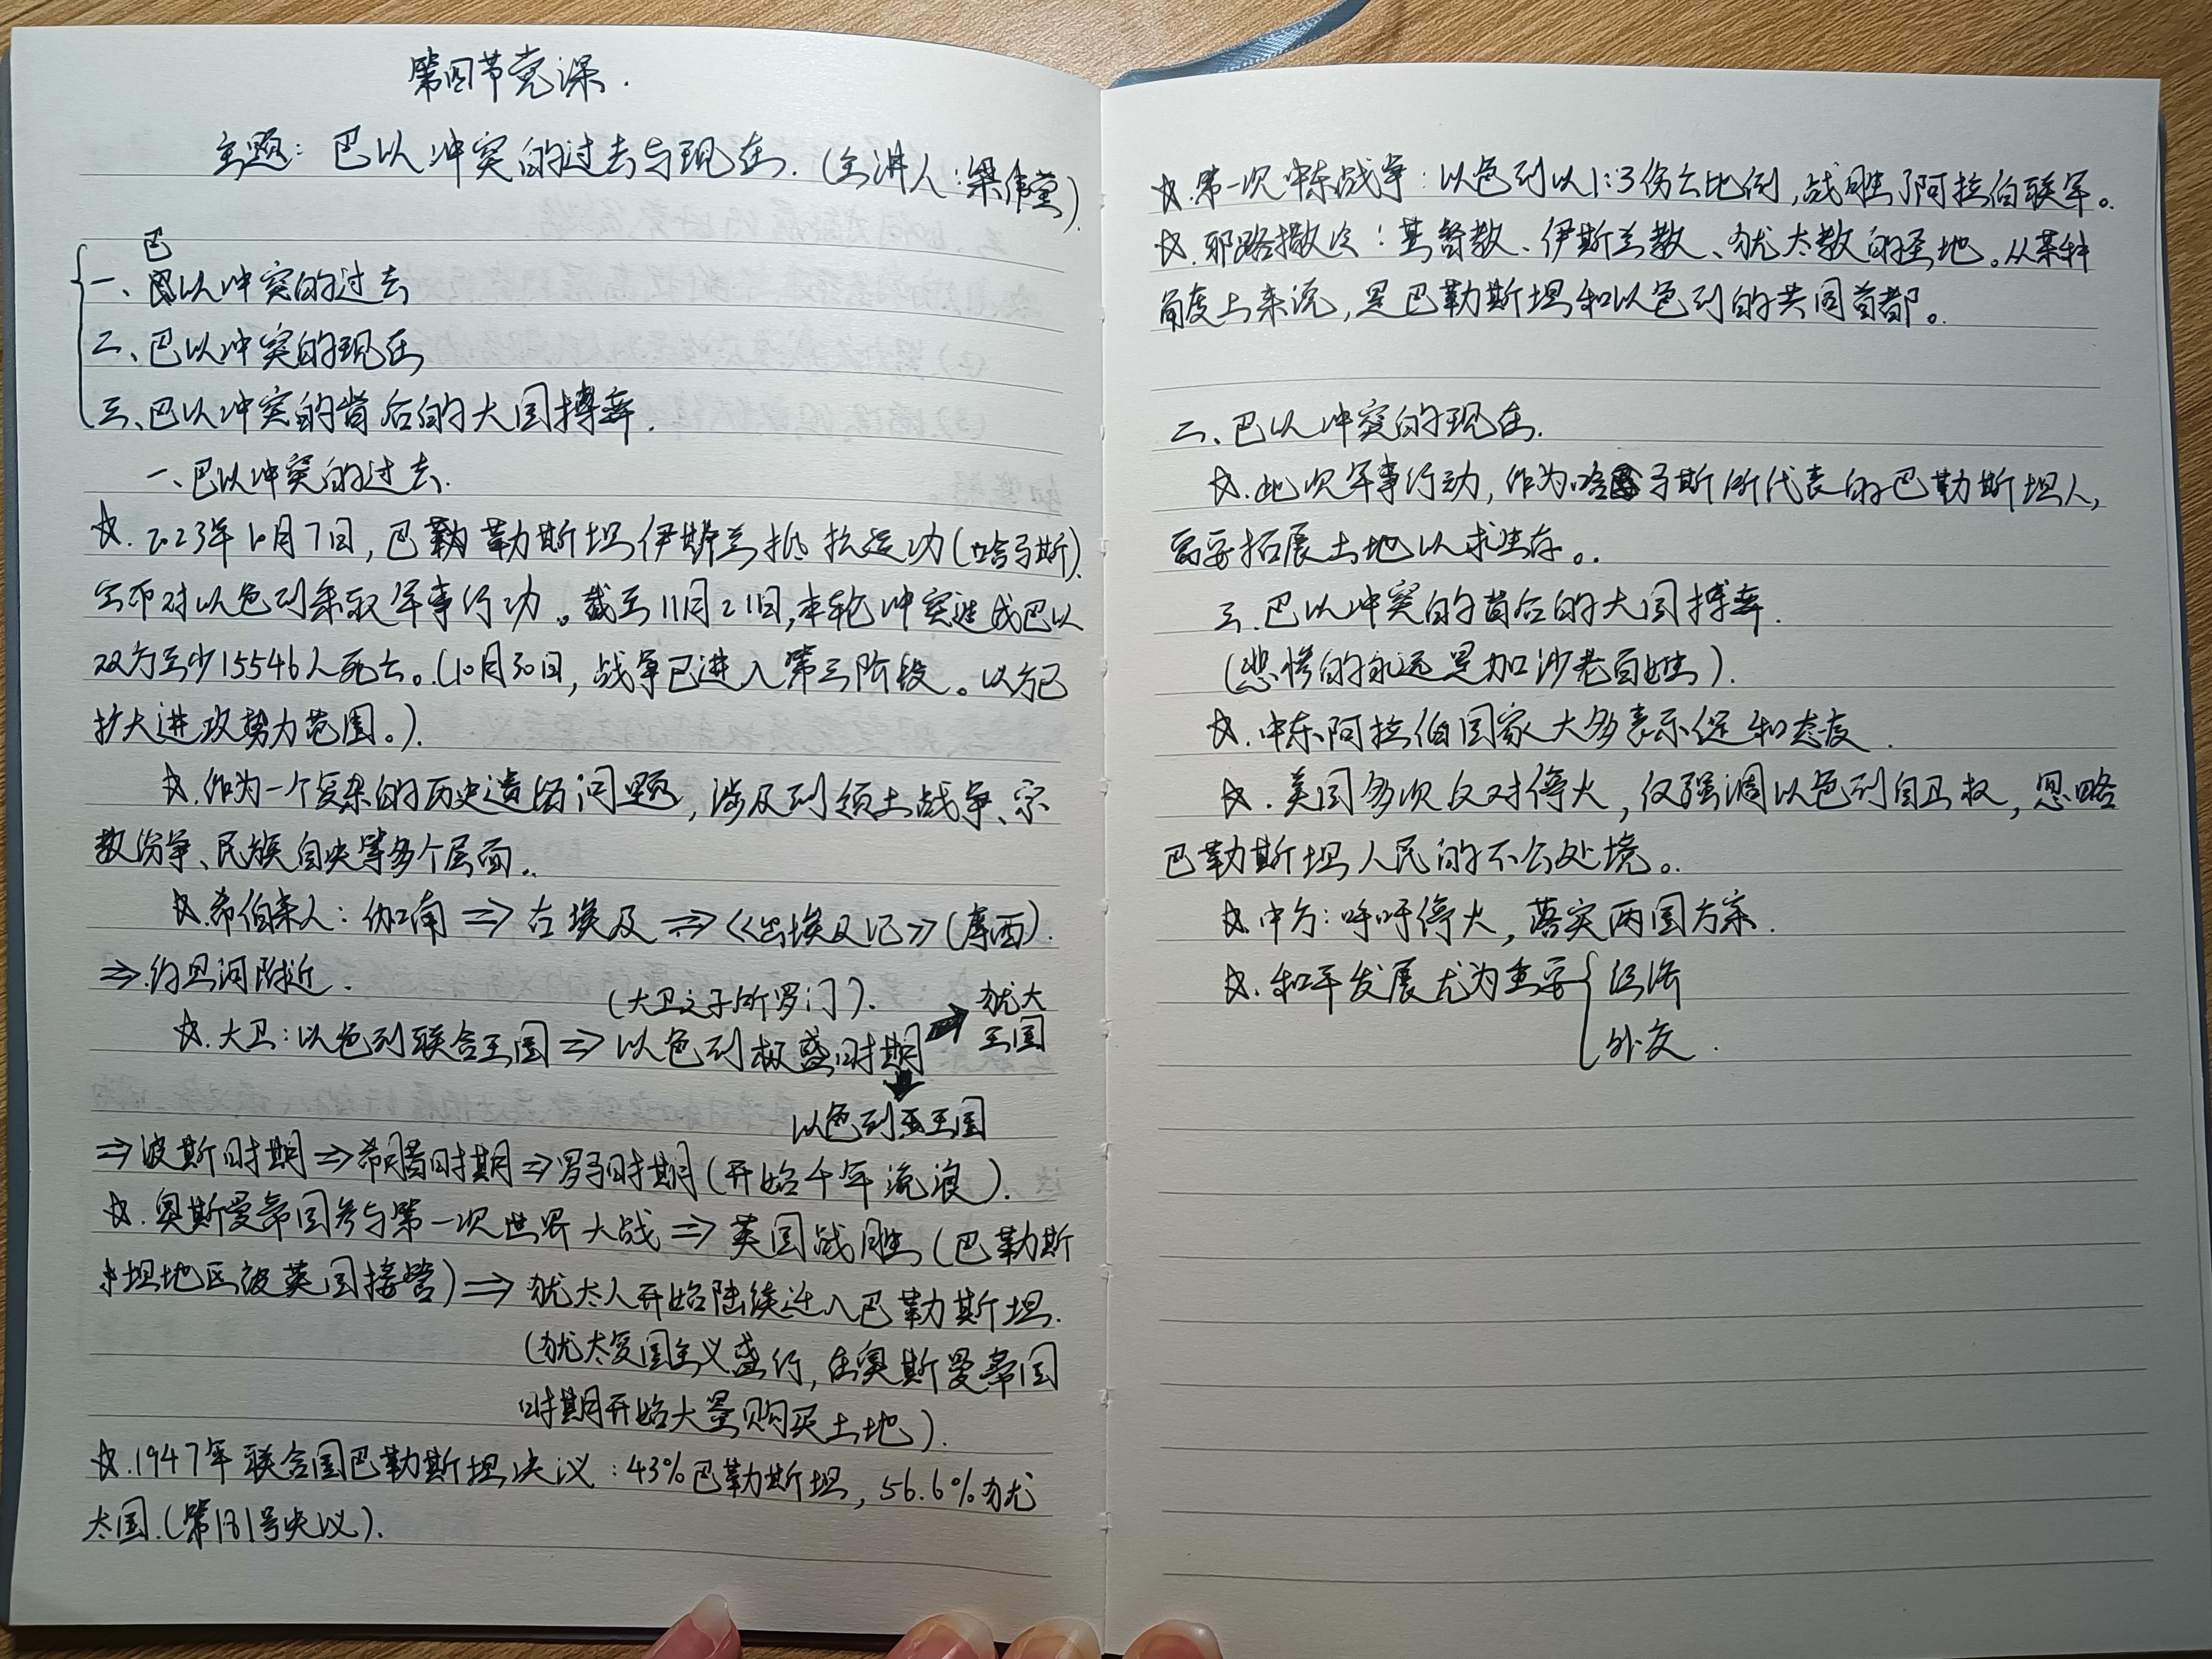 第四节党课.
主题：巴以冲突的过去与现在.（主讲人：梁伟堂）.
巴
一、以冲突的过去
二、巴以冲突的现在
三、巴以冲突的背后的大国搏弈.
一、巴以冲突的过去.
☆.2023年10月7日，巴勒斯坦伊斯兰抵抗运动（哈马斯）.
宣布对以色列采取军事行动。截至11月21日,本轮冲突造成巴以
双方至少15546人死亡。（10月30日，战争已进入第三阶段。以方已
扩大进攻势力范围。）.
☆.作为一个复杂的历史遗留问题，涉及到领土战争、宗
教纷争、民族自决等多个层面.
☆.希伯来人：伽南⇒古埃及⇒《出埃及记》（摩西）.
⇒.约旦河附近.
（大卫之子所罗门）.
☆.大卫：以色列联合王国⇒以色列极盛时期➡犹大
王国
⬇
以色列王国
⇒波斯时期⇒希腊时期⇒罗马时期（开始千年流浪）.
☆.奥斯曼帝国参与第一次世界大战⇒英国战胜（巴勒斯
坦地区被英国接管）⇒犹太人开始陆续迁入巴勒斯坦.
（犹太复国主义盛行，在奥斯曼帝国
时期开始大量购买土地）.
☆.1947年联合国巴勒斯坦决议：43%巴勒斯坦，56.6%犹
太国.（第181号决议）.
☆.第一次中东战争：以色列以1:3伤亡比例，战胜了阿拉伯联军。
☆.耶路撒冷：基督教、伊斯兰教、犹太教的圣地。从某种
角度上来说，是巴勒斯坦和以色列的共同首都。
二、巴以冲突的现在.
☆.此次军事行动，作为哈马斯所代表的巴勒斯坦人，
需要拓展土地以求生存。
三.巴以冲突的背后的大国搏弈.
（悲惨的永远是加沙老百姓）.
☆.中东阿拉伯国家大多表示促和态度.
☆.美国多次反对停火，仅强调以色列自卫权，忽略
巴勒斯坦人民的不公处境。
☆.中方：呼吁停火，落实两国方案.
☆.和平发展尤为重要{经济
外交.